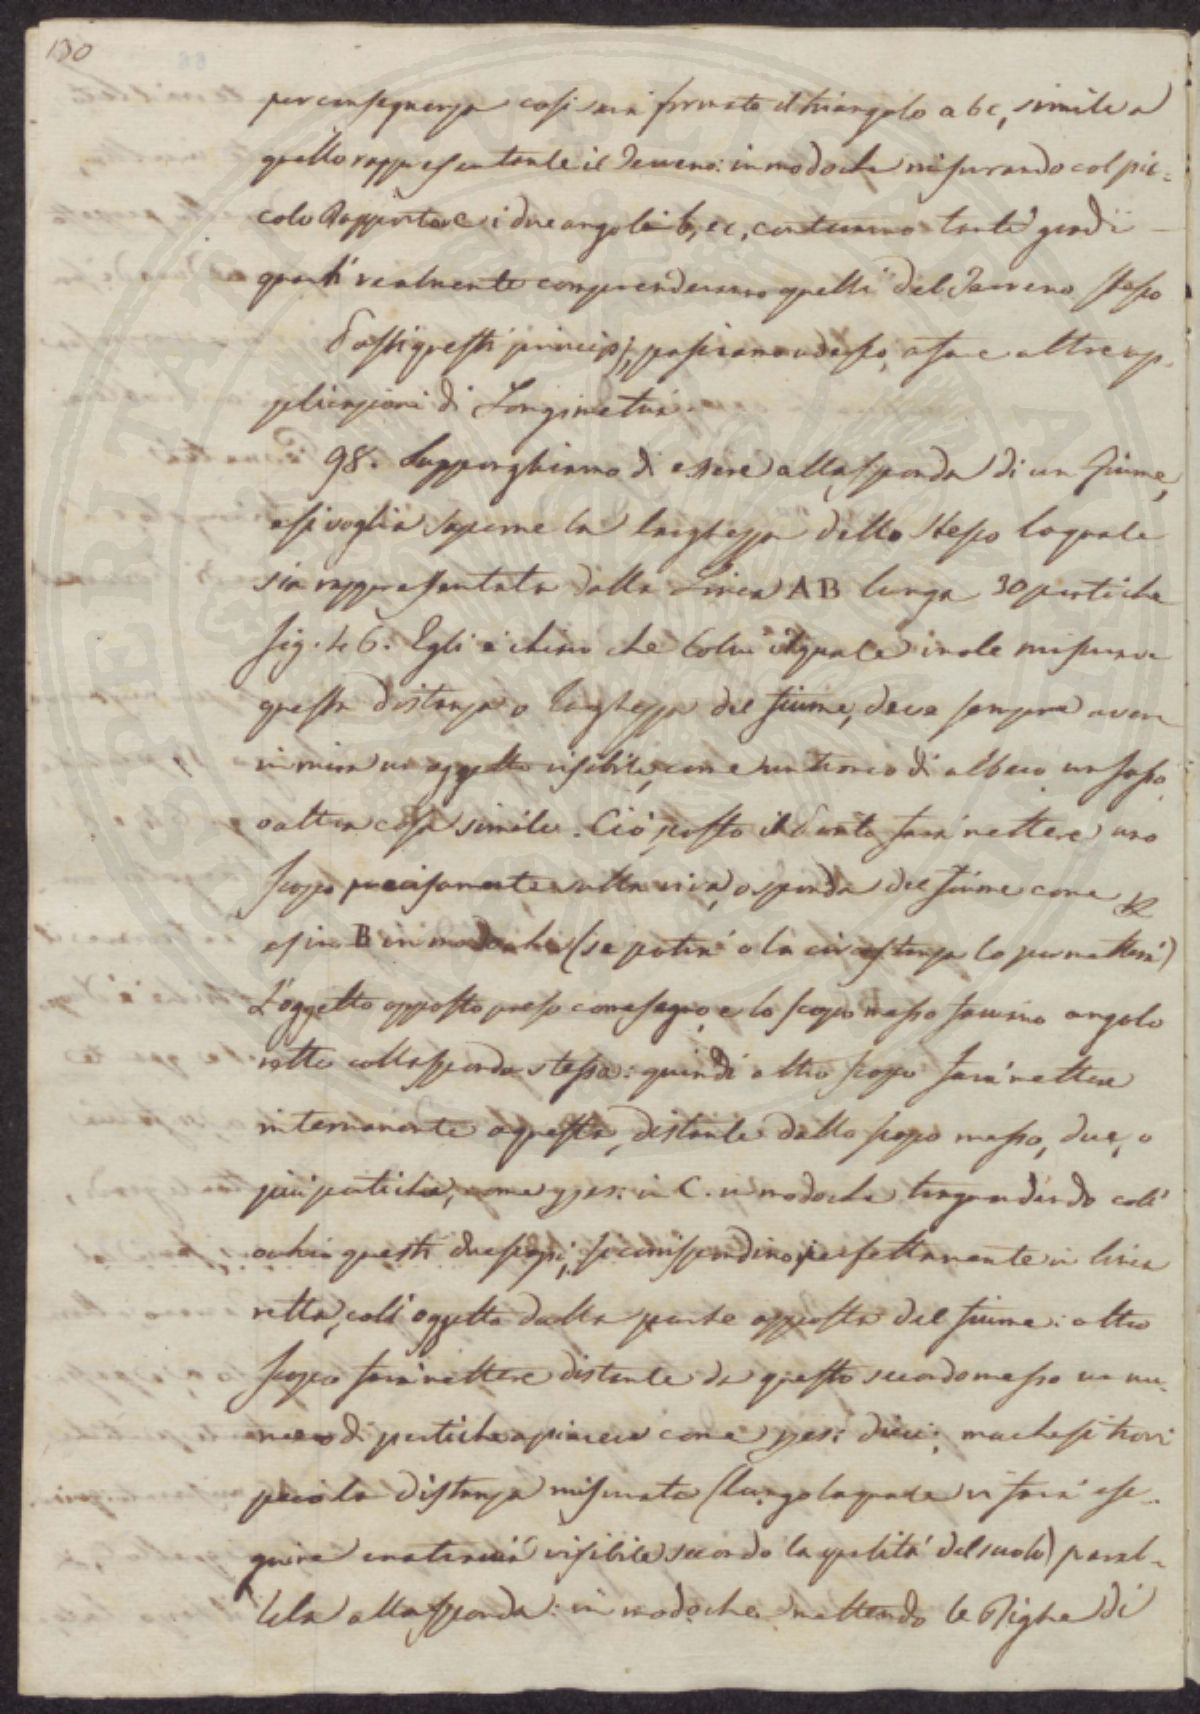 130
per conseguenza così sarà formato il triangolo a b c, simile a
quello rappresentante il Terreno: in modo che misurando col pic=
colo Rapportatore i due angoli b, e c, conteranno tanti gradi
quanti realmente comprenderanno quelli del Terreno stesso
Dati questi principj, passiamo adesso, a fare altre ap=
plicazioni di Longimetria.
98. Supponghiamo di essere alla sponda di un fiume,
e si voglia saperne la larghezza dello stesso la quale
sia rappresentata dalla Linea AB lunga 30 pertiche
fig. 46. Egli è chiaro che Colui il quale vuole misurare
questa distanza o larghezza del fiume, deve sempre avere
in mira un oggetto visibile, come un tronco di albero, un sasso,
o altra cosa simile. Ciò posto il Perito farà mettere uno
scopo precisamente sulla riva, o sponda del fiume come
in B in modo che (se potrà o la circostanza lo permetterà)
L'oggetto opposto preso come segno, e lo scopo messo faccino angolo
retto colla sponda stessa: quindi altro scopo farà mettere
internamente a questa, distante dallo scopo messo, due, o
più pertiche, come p. es: in C. in modo che traguardando coll'
occhio questi due scopi, si corrispondino perfettamente in linea
retta, coll'oggetto dalla parte opposta del fiume: altro
scopo farà mettere distante da questo secondo messo un nu=
mero di pertiche a piacere come p. es: dieci; ma che si trovi
però la distanza misurata (lungo la quale vi farà ese=
guire una traccia visibile secondo la qualità del suolo) paral=
lela alla sponda: in modo che mettendo le Righe di